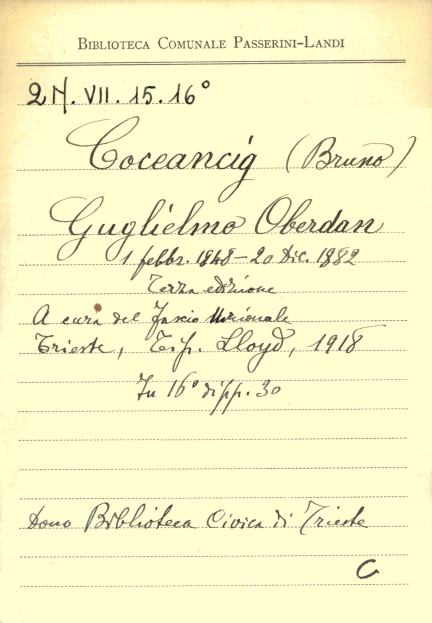 BIBLIOTECA COMUNALE PASSERINI-LANDI
2 N. VII. 15. 16°
Coceancig (Bruno)
Guglielmo Oberdan
1 febbr. 1848 - 20 Dic. 1882
Terza edizione
A cura del Fascio Nazionale
Trieste, Tip. Lloyd, 1918
In 16° di pp. 30
Dono Biblioteca Civica di Trieste
C